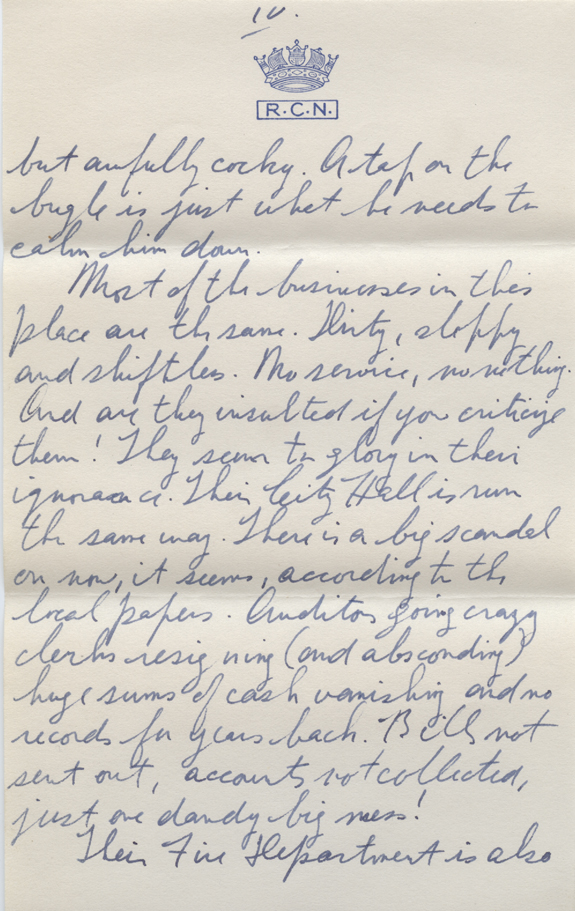 IV.
R.C.N.
but awfully cocky. A tap on the
bugle is just what he needs to
calm him down.
Most of the businesses in this
place are the same. Dirty, sloppy
and shiftless. No service, no nothing.
And are they insulted if you criticize
them! They seem to glory in their
ignorance. Their City Hall is run
the same way. There is a big scandal
on now, it seems, according to the
local papers. Auditors going crazy
clerks resigning (and absconding)
huge sums of cash vanishing and no
records for years back. Bills not
sent out, accounts not collected,
just one dandy big mess!
Their Fire Department is also